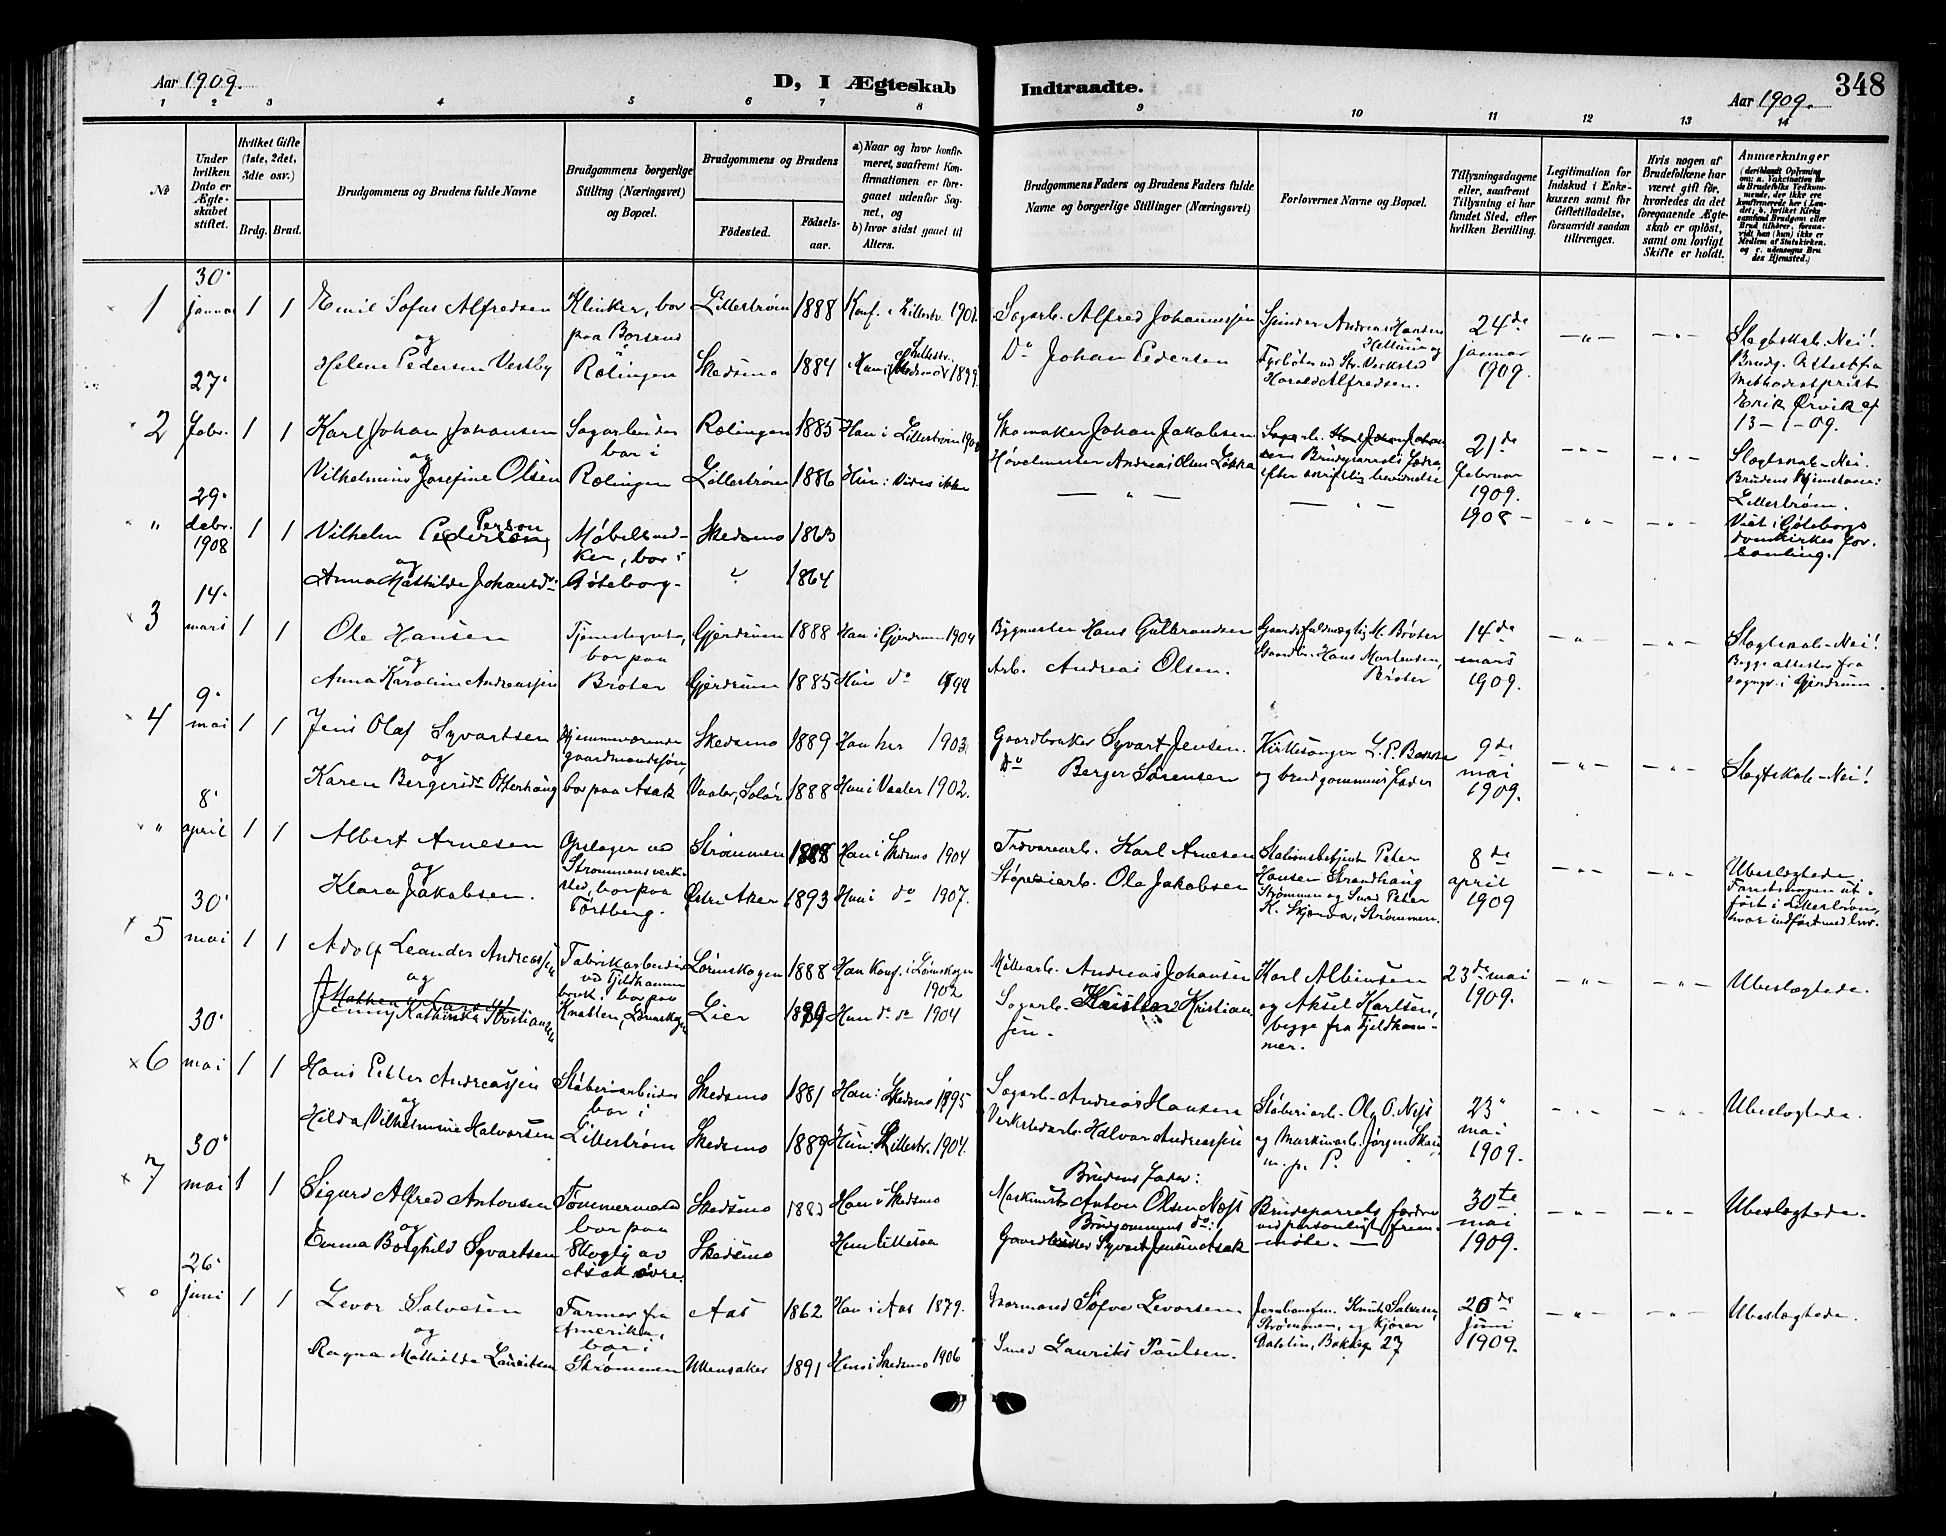 Aar 1909.
D, I Ægteskab
Indtraadte.
Aar 1909.
348
1 2 3 4 5 6 7 8 9 10 11 12 13 14
No
Under hvilken Dato er Ægteskabet stiftet.
Hvilket Gifte (1ste, 2det, 3die osv.)
Brdg. Brud.
Brudgommens og Brudens fulde Navne
Brudgommens borgerlige Stilling (Næringsvei) og Bopæl.
Brudgommens og Brudens
Födested.
Födsels-aar.
a) Naar og hvor konfirmeret, saafremt Konfirmationen er foregaaet udenfor Sognet, og
b) hvor sidst gaaet til Alters.
Brudgommens Faders og Brudens Faders fulde Navne og borgerlige Stillinger (Næringsvei)
Forlovernes Navne og Bopæl.
Tillysningsdagene eller, saafremt Tillysning ei har fundet Sted, efter hvilken Bevilling.
Legitimation for Indskud i Enkekassen samt for Giftetilladelse, forsaavidt saadan tiltrænges.
Hvis nogen af Brudefolkene har været gift för, hvorledes da det foregaaende Ægteskab er oplöst, samt om lovligt Skifte er holdt.
Anmærkninger
(deriblandt Oplysning om: a. Vakcination for de Brudefolks Vedkommende, der ikke ere konfirmerede her i Landet; b. hvilket Kirkesamfund Brudgom eller Brud tilhører, forsaavidt han (hun) ikke er Medlem af Statskirken, og c. udensogns Brudes Hjemsted.)
1 30. januar 1 1 Emil Sofus Alfredsen Klinker, bor Lillestrøm 1888 Konf. i Lillestr. 1902. Sagarb. Alfred Johannessen Spinder Andreas Hansen 24de januar 1909. Slegtskab-Nei!
og paa Borsrud Brudg. Attest fra
Helene Pedersen Vestby Rælingen Skedsmo 1884 Hun i Skedsmo 1899. Do Johan Pedersen Fyrbøter ved Str. Verksted Methodistprest
Harald Alfredsen. Erik Ørvik af
13-1-09.
2 27. Febr. 1 1 Karl Johan Johansen Sagarbeider Rælingen 1885 Han i Lillestrøm Skomaker Johan Jakobsen 21de Februar 1909. Slegtskab-Nei.
og bor i Brudens Hjemstavn:
Vilhelmine Josefine Olsen Rælingen Lillestrøm 1886 Hun: Vides ikke Høvelmester Andreas Olsen Løkka efter skriftlig bevidnelse Lillestrøm.
" 29. debr. 1908 1 1 Vilhelm Pederson Person Møbelsnedker, bor i Skedsmo 1863 1908 Viet i Göteborgs
og domkirkes forsamling.
Anna Mathilde Johansdr. Göteborg. " 1864
3 14. mars 1 1 Ole Hansen Tjenestegut, Gjerdrum 1888 Han i Gjerdrum 1904 Bygmester Hans Gulbrandsen Gaardsfuldmægtig M. Brøter 14de mars 1909. Slegtskab-Nei!
og bor paa Gaardbr. Hans Mortensen, Begge attester fra
Anna Karoline Andreassen Brøter Gjerdrum 1885 Hun do 1899 Arb. Andreas Olsen. Brøter sognepr. i Gjerdrum.
4 9. mai 1 1 Jens Olaf Syvartsen Hjemmeværende Skedsmo 1889 Han her 1903. Gaardbruker Syvart Jensen. Kirkesanger 9de mai 1909. Slegtskab-Nei!
og gaardmandssøn,
Karen Bergersdr. Otterhaug bor paa Asak Vaaler, Solør 1888 Hun i Vaaler 1902. Do Berger Sørensen og brudgommens fader
" 8. april 1 1 Albert Arnesen Opslager ved Strømmen 1888 Han i Skedsmo 1904 Trævarearb. Karl Arnesen Stationsbetjent Peter 8de april 1909 Ubeslegtede.
og Strømmens verksted, bor paa Hansen Strandhaug Forretningen utført i Lillestrøm,
Klara Jakobsen. Tørtberg. Østre Aker 1893 Hun i do 1907. Støperiarb. Ole Jakobsen Strømmen og Smed Peter hvor indført med nr.
K. Skjønda, Strømmen.
5 30. mai 1 1 Adolf Leander Andreassen Fabrikarbeider Lørenskogen 1888 Han konf. i Lørenskogen 1902 Møllearb. Andreas Johansen Karl Albinsen 23de mai 1909. Ubeslegtede.
og ved Fjeldhammer bruk. bor paa
Jenny Kathinka Kristiansen Knatten, Lørenskogen Lier 1889 Hun do do 1904 Sagarb. Kristian Kristiansen. og Aksel Karlsen, begge fra Fjeldhammer.
6 30. mai 1 1 Hans Petter Andreassen Støberiarbeider Skedsmo 1881 Han: Skedsmo 1895 Sagarb. Andreas Hansen Støberiarb. Ole O. Ness 23. mai 1909. Ubeslegtede.
og bor i
Hilda Vilhelmine Halvorsen Lillestrøm Skedsmo 1889 Hun: Lillestr. 1904. Verkstedarb. Halvor Andreassen og Maskinarb. Jørgen
m. p. P.
7 30. mai 1 1 Sigurd Alfred Antonsen Tømmermand Skedsmo 1883 Han i Skedsmo Brudens Fader: Maskinist Anton Olsen Næss Brudeparrets fædre 30te mai 1909. Ubeslegtede.
og bor paa Brudgommens do: ved personligt fremmøte.
Emma Borghild Syvartsen Skogly av Asak øvre. Skedsmo Hun likesaa Gaardbruker Syvart Jensen Asak
" 26. juni 1 1 Levor Salvesen Farmer fra Aas 1862 Han i Aas 1879. Gaarmand Søfve Levorsen. Jernbanefm. Knut Salvesen, 20de juni 1909. Ubeslegtede.
og Amerika, bor i Strømmen, og kjører
Ragna Mathilde Lauritsen Strømmen Ullensaker 1891 Hun i Skedsmo 1906 Smed Lauriks Paulsen. Dahlin, Bakkeg. 27